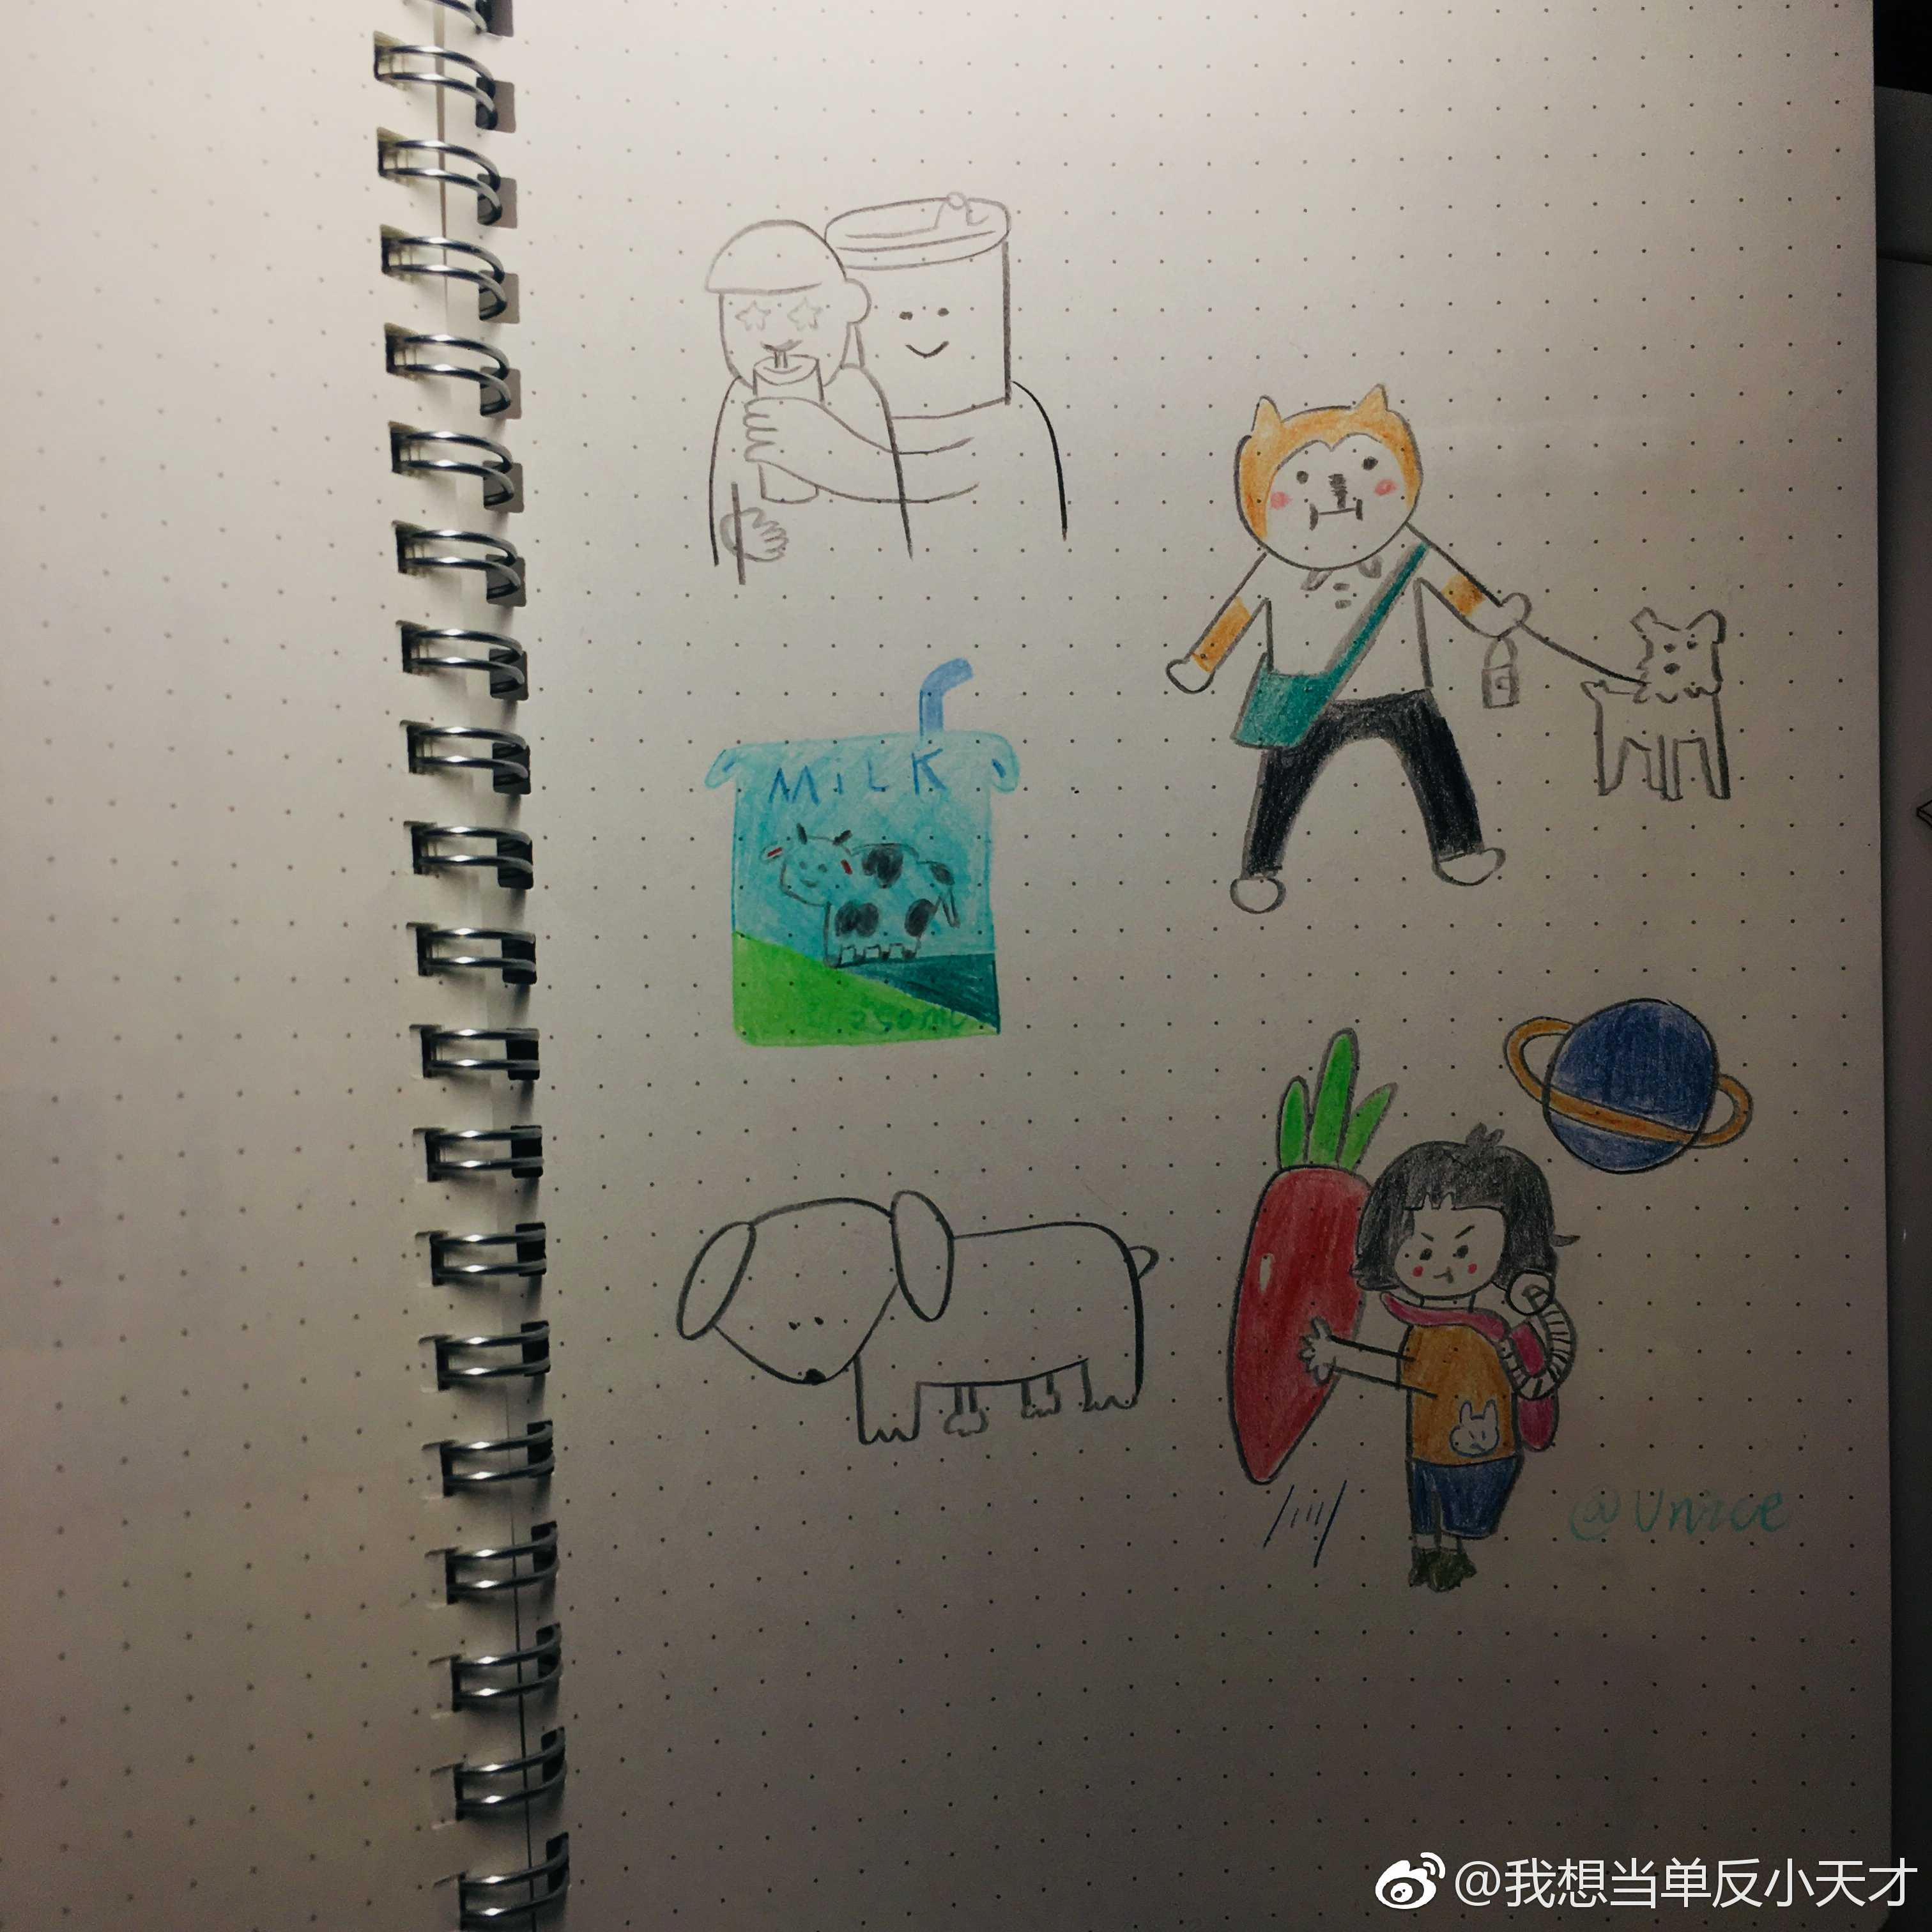 MiLK
250ml
@Unice
@我想当单反小天才